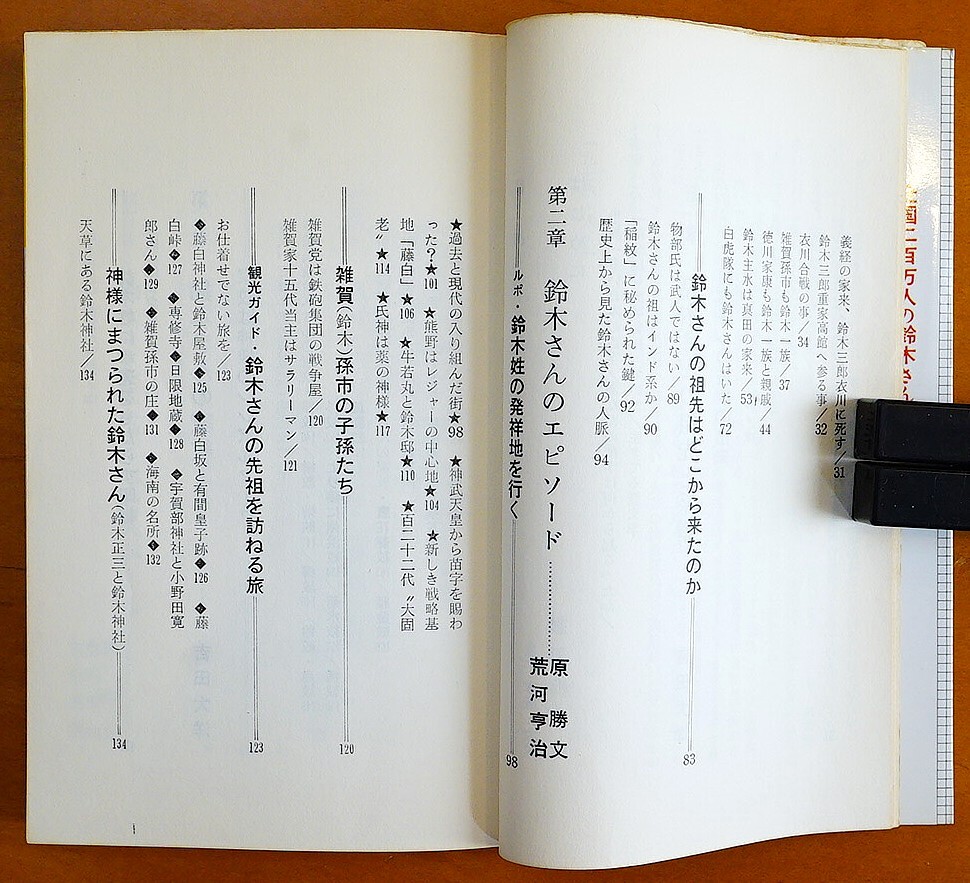 義経の家来、鈴木三郎衣川に死す/31
鈴木三郎重家高館へ参る事/32
衣川合戦の事/34
雑賀孫市も鈴木一族/37
徳川家康も鈴木一族と親戚/44
鈴木主水は真田の家来/53
白虎隊にも鈴木さんはいた/72
鈴木さんの祖先はどこから来たのか 83
物部氏は武人ではない/89
鈴木さんの祖はインド系か/90
「稲紋」に秘められた鍵/92
歴史上から見た鈴木さんの人脈/94
第二章 鈴木さんのエピソード…………原 勝文
荒河亨治
ルポ・鈴木姓の発祥地を行く 98
★過去と現代の入り組んだ街★98 ★神武天皇から苗字を賜わ
った?★101 ★熊野はレジャーの中心地★104 ★新しき戦略基
地「藤白」★106 ★牛若丸と鈴木邸★110 ★百二十二代〝大固
老〟★114 ★氏神は薬の神様★117
雑賀(鈴木)孫市の子孫たち 120
雑賀党は鉄砲集団の戦争屋/120
雑賀家十五代当主はサラリーマン/121
観光ガイド・鈴木さんの先祖を訪ねる旅 123
お仕着せでない旅を/123
◆藤白神社と鈴木屋敷◆125 ◆藤白坂と有間皇子跡◆126 ◆藤
白峠◆127 ◆専修寺◆日限地蔵◆128 ◆宇賀部神社と小野田寛
郎さん◆129 ◆雑賀孫市の庄◆131 ◆海南の名所◆132
神様にまつられた鈴木さん(鈴木正三と鈴木神社) 134
天草にある鈴木神社/134